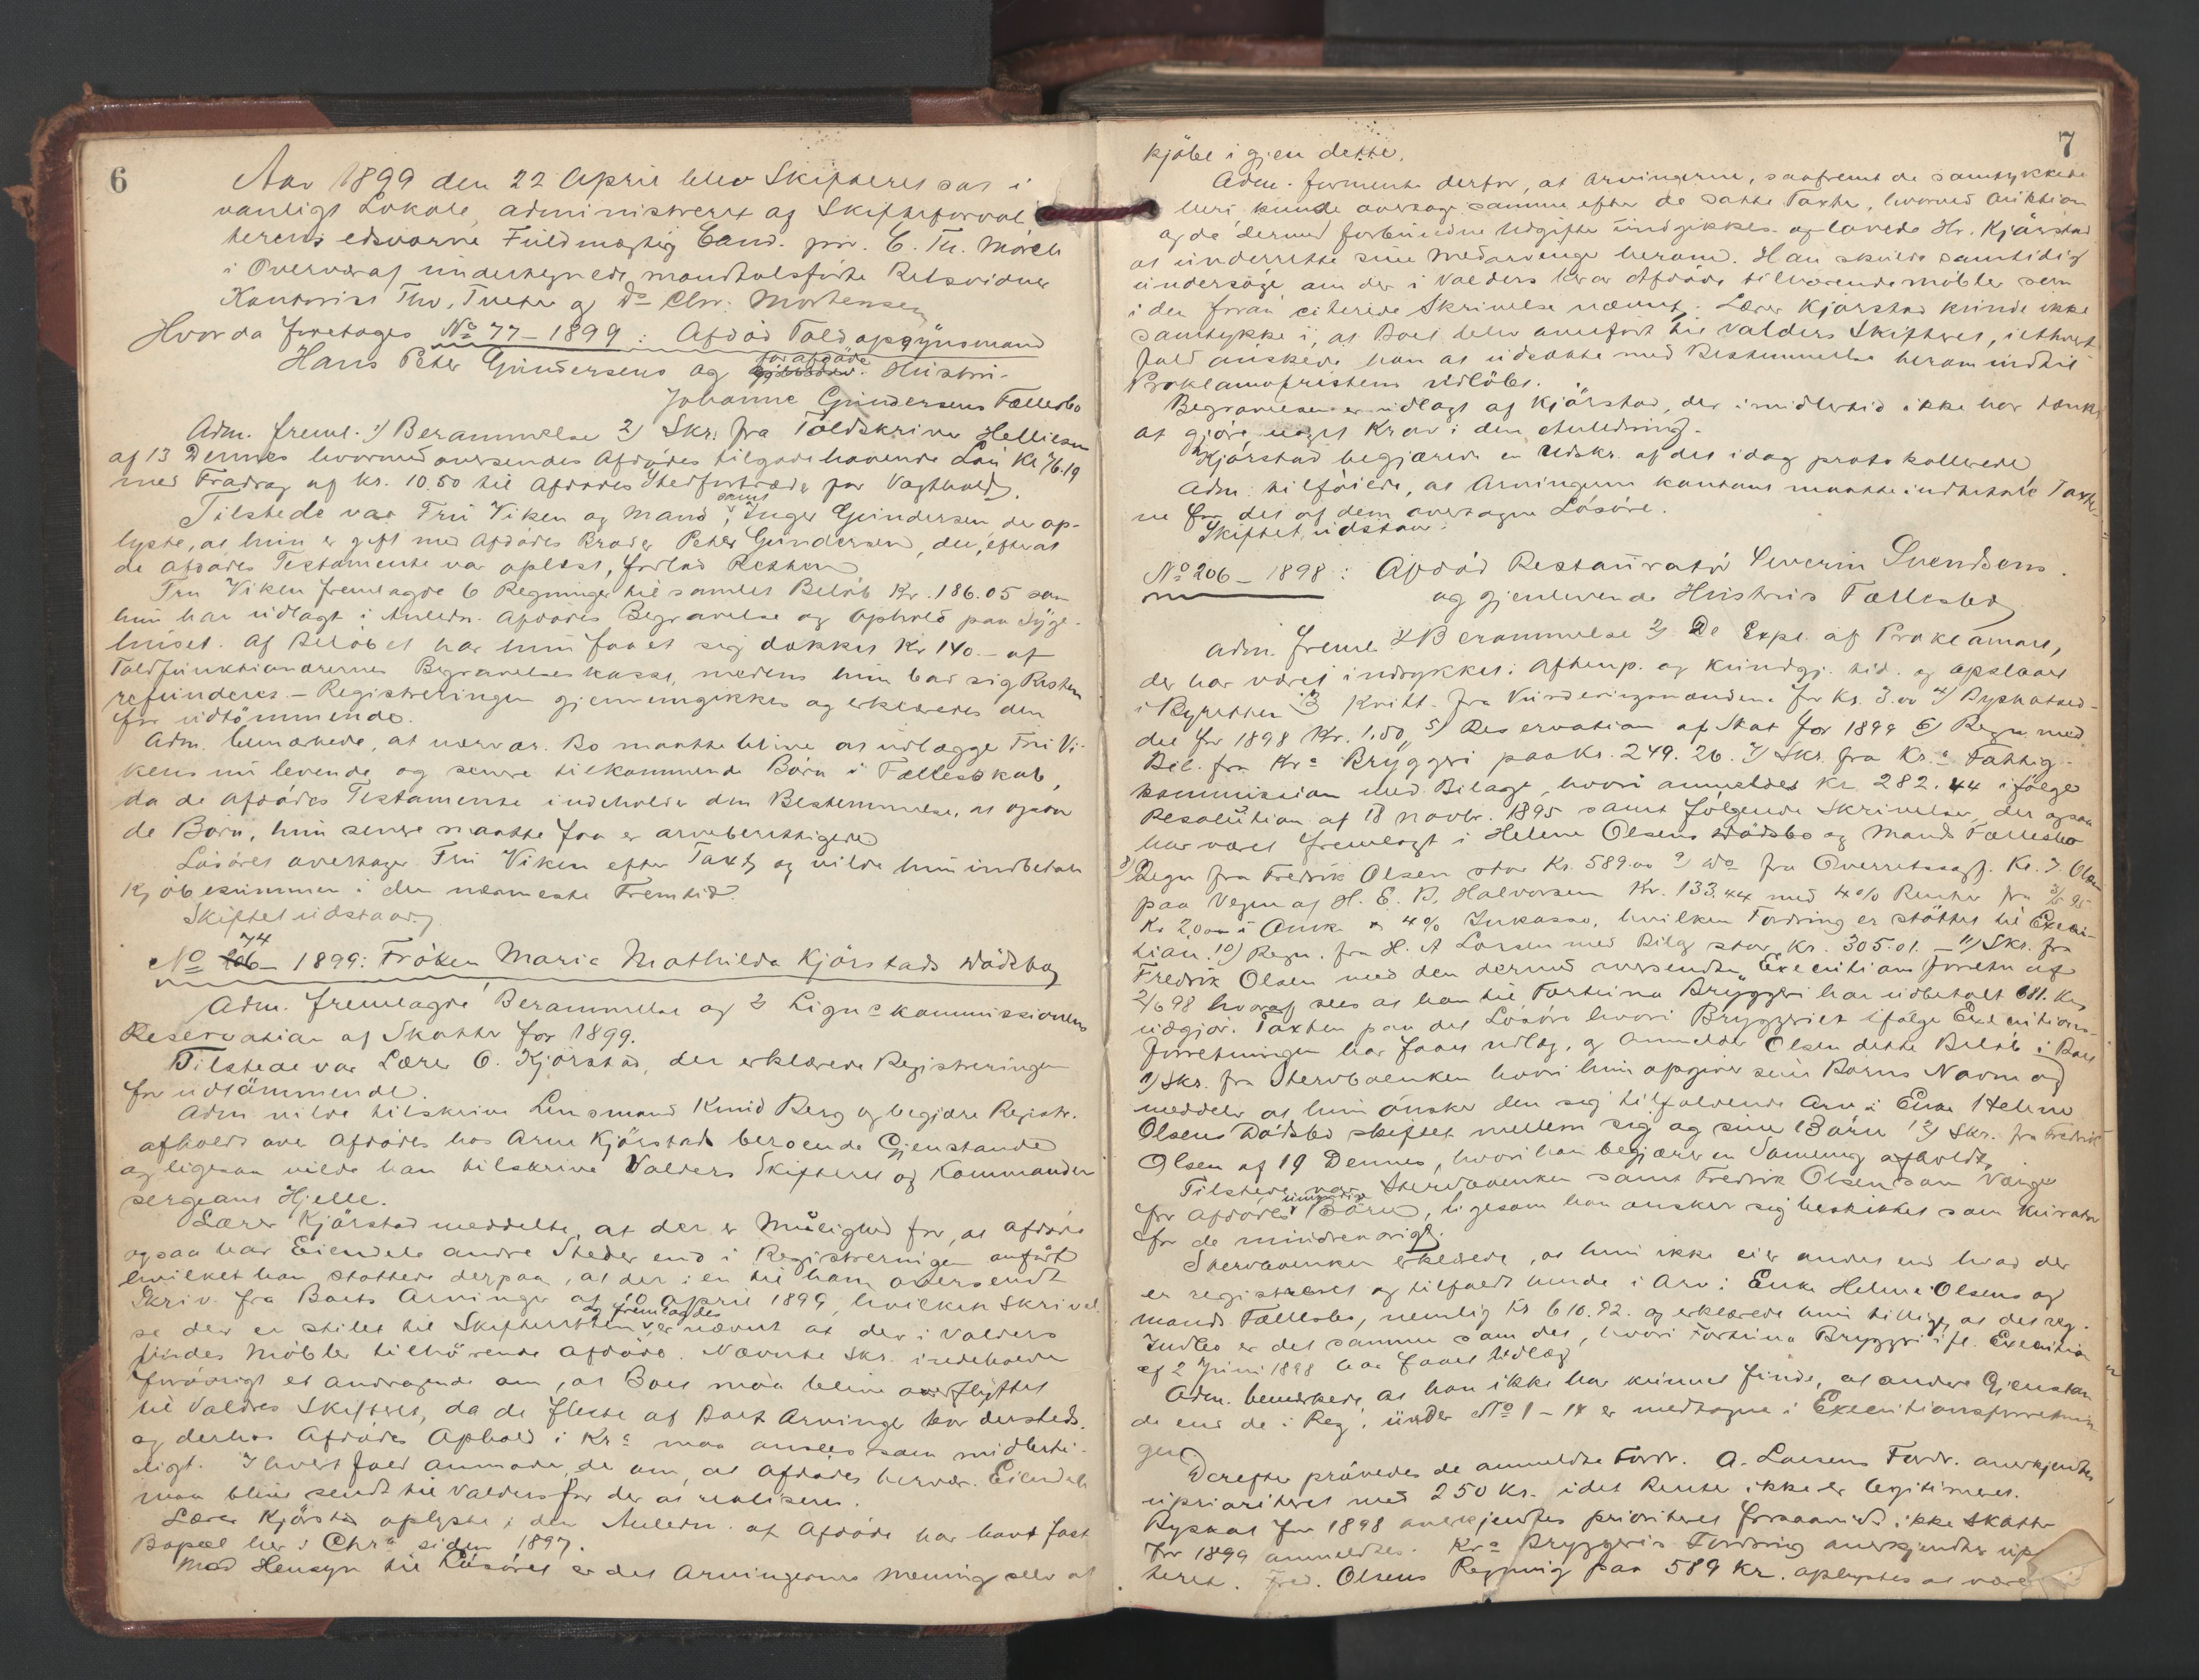 6
Aar 1899 den 22 April blev Skifteret sat i
vanligt Lokale administreret af Skifteforval
terens edsvorne Fuldmægtig Cand. jur. C. Th. Mörch
i Overvær af undertegnede mandtalsförte Retsvidner
Kontorist Thv. Tveter og Do Chr. Mortensen
Hvorda foretoges No 77 - 1899: Afdöd Toldopsynsmand
Hans Peter Gundersens og før afdøde Hustru
Johanne Gundersens Fællesbo
Adm. freml. 1) Berammelse 2) Skr. fra Toldskriver Helliesen
af 13 Dennes hvormed oversendes Afdödes tilgodehavende Lön Kr 76.19
med Fradrag af Kr. 10.50 til Afdödes Stedfortræder for Vagthold.
Tilstede var Fru Viken og Mand, samt Inger Gundersen der op-
lyste, at hun er gift med Afdödes Broder Peter Gundersen, der, efterat
de Afdödes Testamente var oplæst, forlod Retten
Fru Viken fremlagde 6 Regninger til samlet Belöb Kr. 186.05 som
hun har udlagt i Anledn. Afdödes Begravelse og Ophold paa Syge-
huset. Af Belöbet har hun faaet sig dækket Kr 140 - af
Toldfunktionærernes Begravelseskasse, medens hun bad sig Resten
refunderet. - Registreringen gjennemgikkes og erklæredes den
for udtömmende.
Adm. bemærkede, at nærvær. Bo maatte blive at udlægge Fru Vi-
kens nu levende og senere tilkommende Börn i Fællesskab,
da de Afdödes Testamente indeholder den Bestemmelse, at ogsaa
de Börn, hun senere maatte faa er arveberettigede
Lösöret overtager Fru Viken efter Taxt og vilde hun indbetale
Kjöbesummen i den nærmeste Fremtid.
Skiftet udstaar.
No 74 - 1899: Fröken Maria Mathilda Kjörstads Dödsbo
Adm. fremlagde 1 Berammelse og 2 Lign.kommissionens
Reservation af Skatte for 1899.
Tilstede var Lærer O. Kjörstad, der erklærede Registreringen
for udtömmende.
Adm vilde tilskrive Lensmand Knud Berg og begjære Registr.
afholdt over Afdödes hos Arne Kjörstad beroende Gjenstande
og ligesaa vilde han tilskrive Valders Skifteret og Kommander
sergeant Hjelle.
Lærer Kjörstad meddelte, at der er Mulighed for, at Afdöde
ogsaa har Eiendele andre Steder end i Registreringen anfört
hvilket han stöttede derpaa, at der i en til ham oversendt
Skriv. fra Boets Arvinger af 10 April 1899, hvilken Skrivel
se der er stilet til Skifteretten og fremlagdes, er nævnt at der i Valders
findes Möbler tilhörende Afdöde. Nævnte Skr. indeholder
forövrigt et Andragende om, at Boet maa blive overflyttet
til Valdres Skifteret, da de fleste af Boets Arvinger bor dersteds
og derhos Afdödes Ophold i Kra maa ansees som midlerti-
digt. I hvert fald anmoder de om, at Afdödes hervær. Eiendele
maa blive sendt til Valders for der at realiseres.
Lærer Kjörstad oplyste i den Anledn. at Afdöde har havt fast
Bopæl her i Chra siden 1897.
Med Hensyn til Lösöret er det Arvingernes Mening selv at
7
kjöbe i gjen dette.
Adm. formente derfor, at Arvingerne, saafremt de samtykkede
heri, kunde overtage samme efter de satte Taxter, hvorved Auktion
og de dermed forbundne Udgifter undgikkes og lovede Hr. Kjörstad
at underrette sine Medarvinger herom. Han skulde samtidig
undersöge om der i Valders var Afdöde tilhörende Möbler som
i den foran citerede Skrivelse nævnt. Lærer Kjörstad kunde ikke
samtykke i, at Boet blev overfört til Valders Skifteret, i ethvert
fald önskede han at udsætte med Bestemmelse herom indtil
Proklamafristens Udlöb.
Begravelsen er udlagt af Kjörstad, der imidlertid ikke har tænkt
at gjöre noget Krav i den Anledning.
Kjörstad begjærede en Udskr. af det idag protokollerede
Adm. tilföiede, at Arvingerne kontant maatte indbetale Taxte-
ne for det af dem overtagne Lösöre.
Skiftet udstaar.
No 206 - 1898: Afdöd Restauratör Severin Svendsens
og gjenlevende Hustrus Fællesbo
Adm. freml. 1) Berammelse 2) De Expl. af Proklamaet,
der har været indrykket i Aftenp. og Kundgj. tid. og opslaaet
i Byretten 3) Kvitt. fra Vurderingsmændene for Kr. 3.00 4) Byskatsed-
del for 1898 Kr. 1.50, 5) Reservation af Skat for 1899 6) Regn. med
Bil. fra Kra Bryggeri paa Kr. 249.26. 7) Skr. fra Kra Fattig-
kommission med Bilage, hvori anmeldes Kr 282.44 ifölge
Resolution af 18 Novbr. 1895 samt fölgende Skrivelser, der ogsaa
har været fremlagt i Helene Olsens Dödsbo og Mands Fællesbo
8) Regn fra Fredrik Olsen stor Kr. 589.00 9) Do fra Overretssagf. Kr. J Olsen
paa Vegne af H. E. B. Halvorsen Kr. 133.44 med 4% Renter fra
Kr 2000 i Omk 4% Inkasso, hvilken Fordring er stöttet til Execu-
tion. 10) Regn. fra H. A Larsen med Bilag stor Kr. 305.01. - 11) Skr. fra
Fredrik Olsen med den dermed oversendte Executionsforretn af
2/6 98 hvoraf sees at han til Fortuna Bryggeri har udbetalt 681. Kr,
udgjör. Taxten paa det Lösöre hvori Bryggeriet ifölge Executions-
forretningen har faaet Udlæg, og anmelder Olsen dette Belöb i Boet
1) Skr. fra Stervboenken hvori hun opgiver sine Börns Navne og
meddeler at hun önsker den sig tilfaldende Arv i Enke Helene
Olsens Dödsbo skiftet mellem sig og sine Börn 12) Skr. fra Fredrik
Olsen af 19 Dennes, hvori han begjærer en Samling afholdt.
Tilstede var Stervboenken samt Fredrik Olsen som Værge
for Afdödes umyndige Börn, ligesom han ønsker sig beskikket som Kurator
for de mindreaarige.
Stervboenken erklærede, at hun ikke eier andet end hvad der
er registreret og tilfaldt hende i Arv i Enke Helene Olsens og
Mands Fællesbo, nemlig Kr 610.92. og erklærede hun tillige, at det reg.
Indbo er det samme som det, hvori Fortuna Bryggeri ifl. Execution
af 2 Juni 1898 har faaet Udlæg
Adm. bemærkede, at han ikke har kunnet finde, at andre Gjenstan
de end de i Reg. under No 1 - 14 er medtagne i Executionsforretnin
gen
Derefter prövedes de anmeldte Fordr. A. Larsens Fordr. anerkjendtes
uprioriteret med 250 Kr. idet Rente ikke er legitimeret.
Byskat for 1898 anerkjendtes prioriteret forsaavidt ikke Skatte
for 1899 anmeldtes. Kra Bryggeris Fordring anerkjendtes up
teret. Fred. Olsens Regning paa 589 Kr. oplystes at være